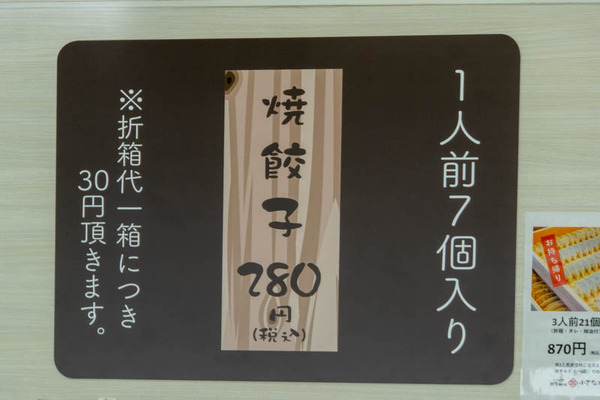 1人前7個入り
焼餃子
280
円
(税込)
※折箱代一箱につき
30円頂きます。
お持ち帰り
3人前21個
870円